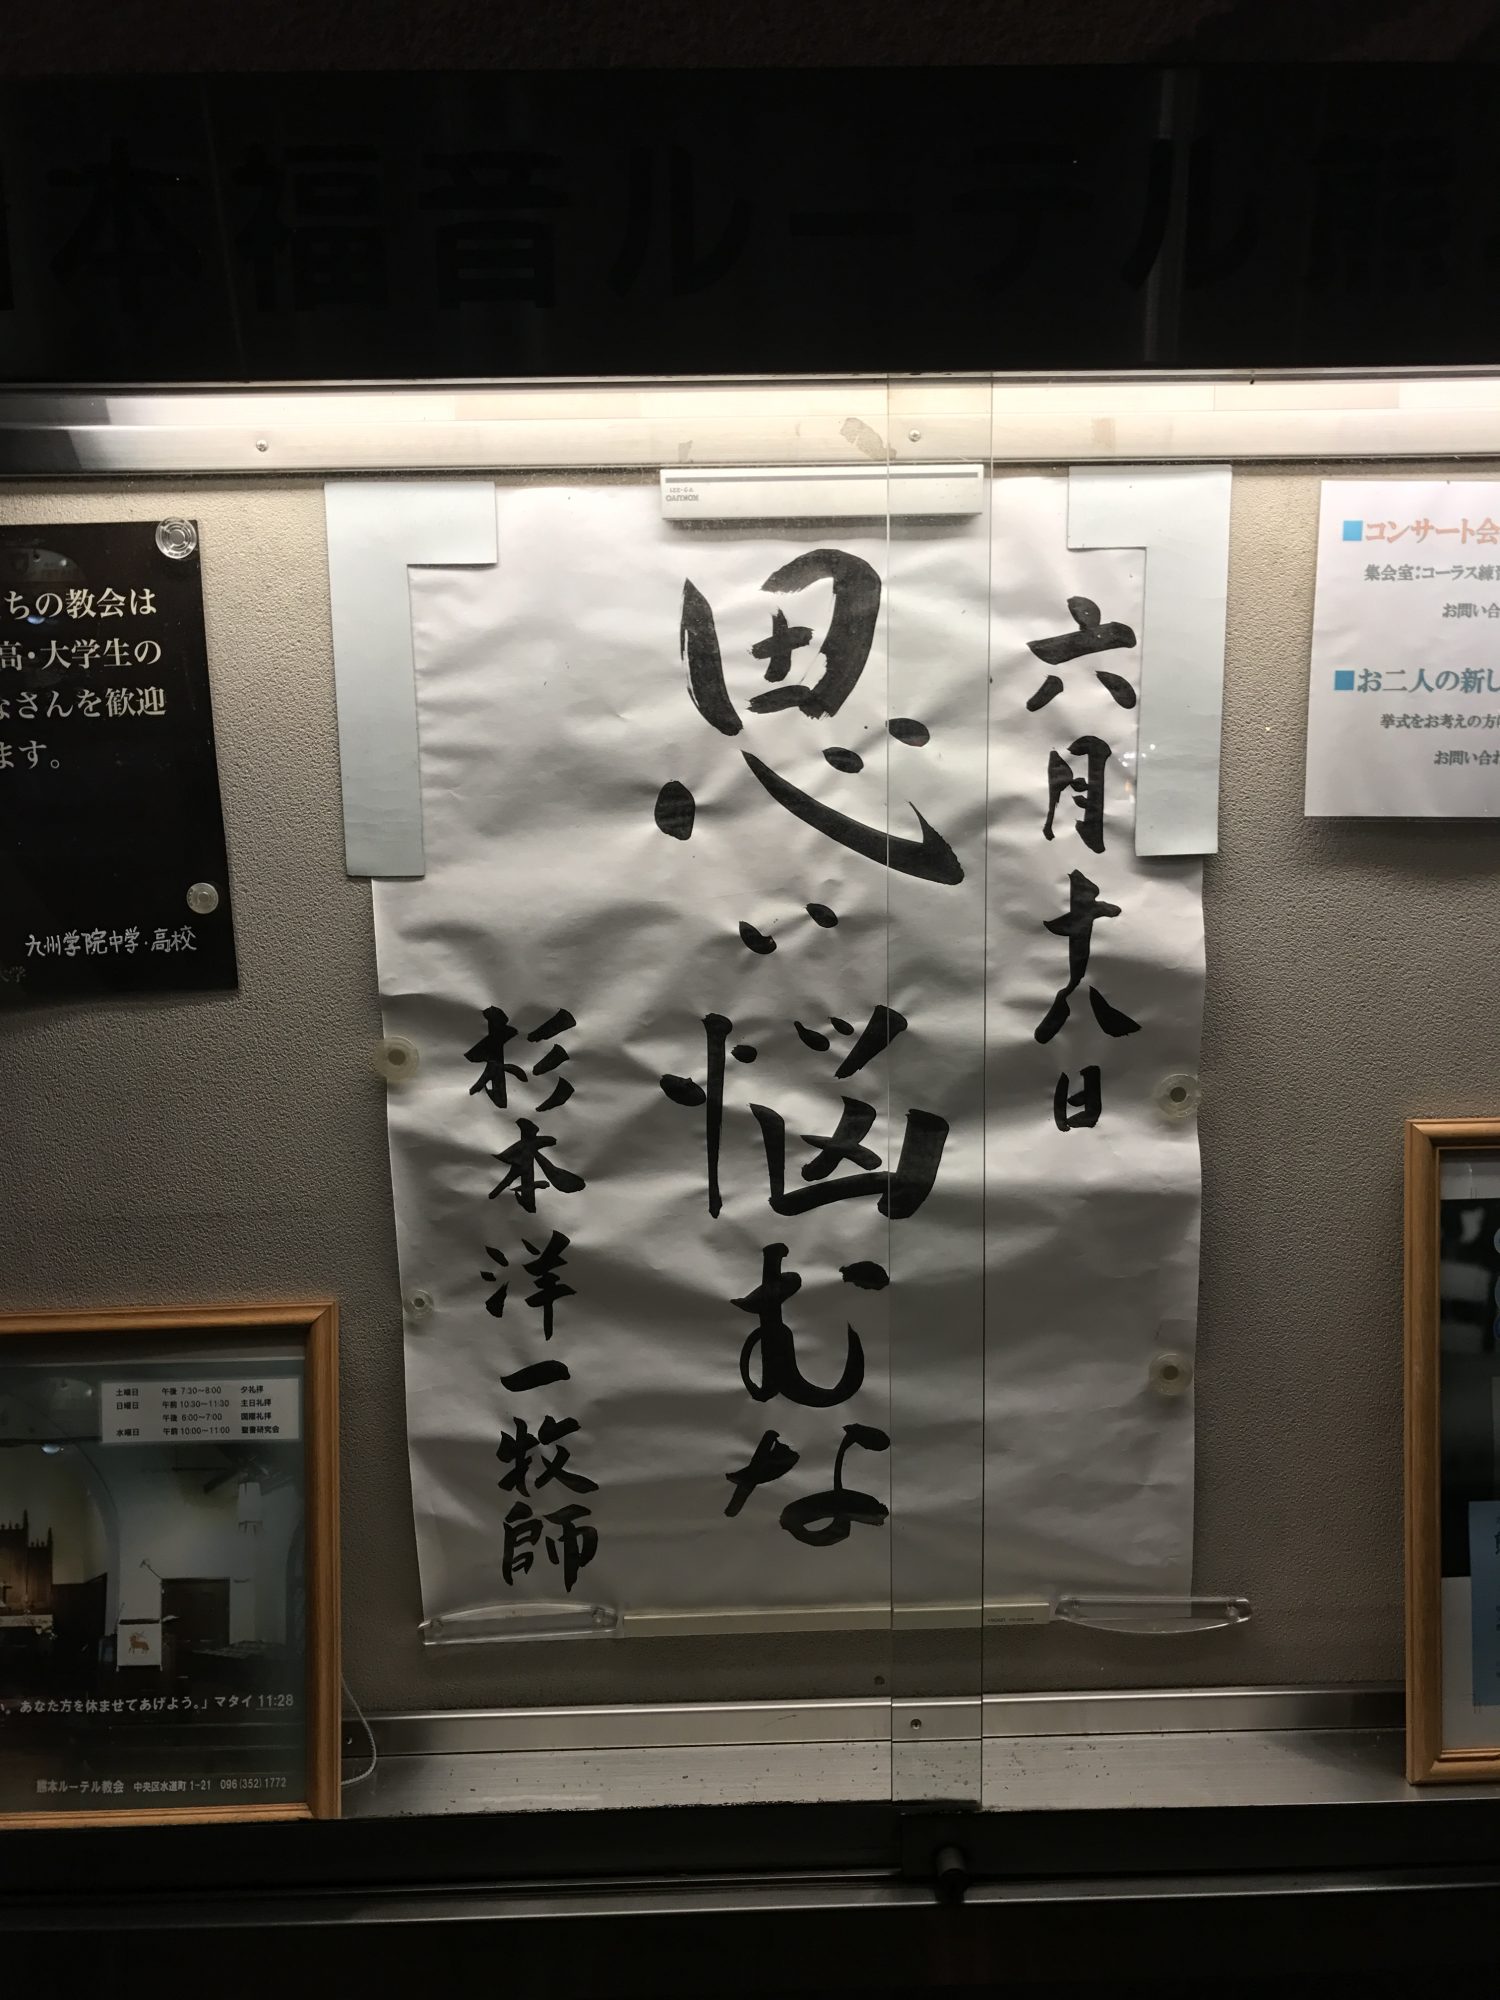 本福音ルーテル熊
KOKUYO
マク-221
六月十八日
思い悩むな
杉本洋一牧師
ちの教会は
高・大学生の
なさんを歓迎
ます。
九州学院中学・高校
大学
■コンサート会
集会室:コーラス練習
お問い合
■お二人の新し
挙式をお考えの方は
お問い合わ
土曜日 午後 7:30～8:00 夕礼拝
日曜日 午前 10:30～11:30 主日礼拝
午後 6:00～7:00 国際礼拝
水曜日 午前 10:00～11:00 聖書研究会
い。あなた方を休ませてあげよう。」マタイ 11:28
熊本ルーテル教会 中央区水道町 1-21 096(352)1772